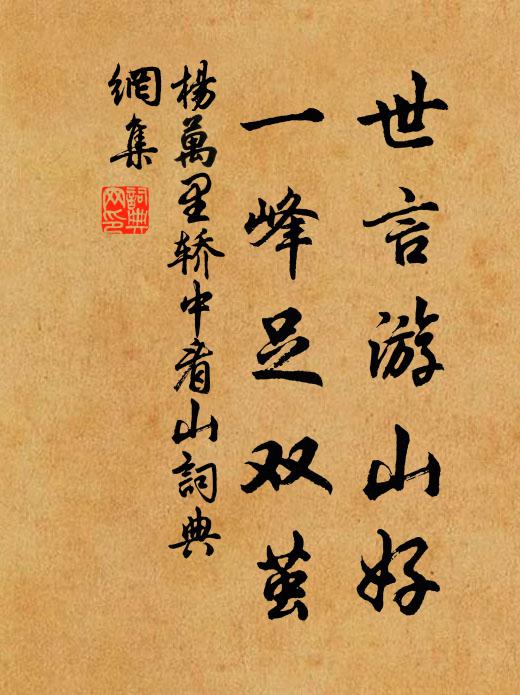 世言游山好
一峰足双茧
楊萬里轿中看山詞典
網集
詞典网印